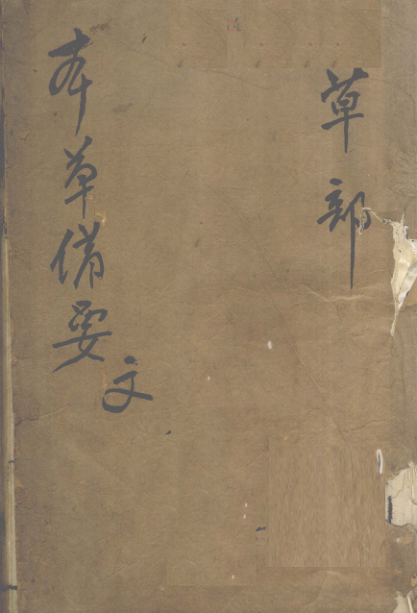 草部
本草備要 文